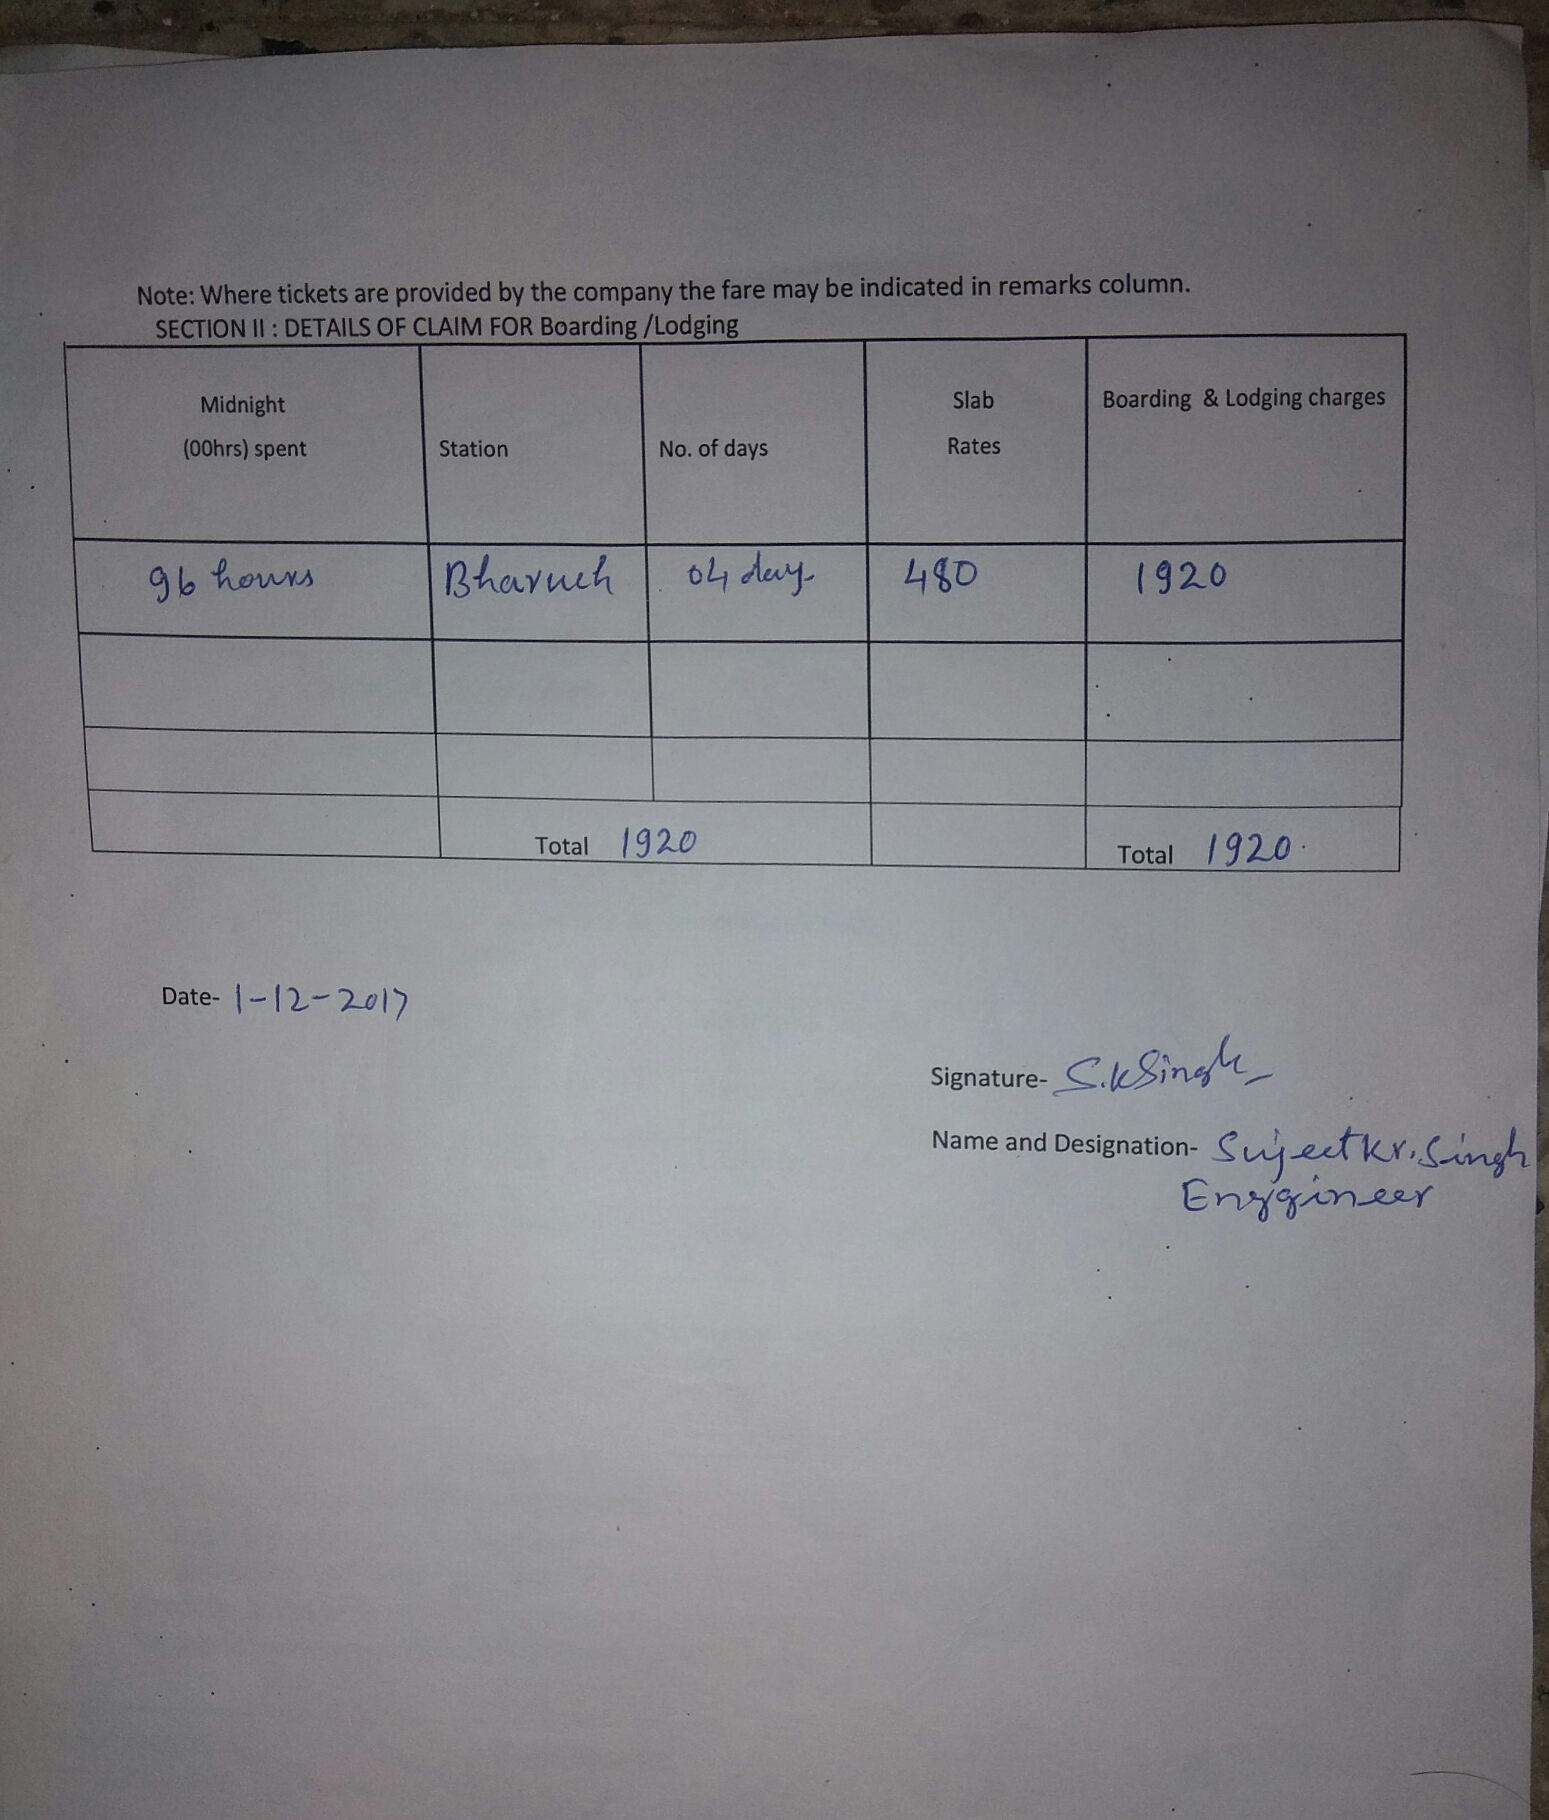 Note: Where tickets are provided by the company the fare may be indicated in remarks column.
SECTION II : DETAILS OF CLAIM FOR Boarding /Lodging
Midnight (00hrs) spent Station No. of days Slab Rates Boarding & Lodging charges
96 hours Bharuch 04 day 480 1920
Total 1920 Total 1920
Date- 1-12-2017
Signature- S.K Singh
Name and Designation- Sujeet Kr. Singh
Enggineer